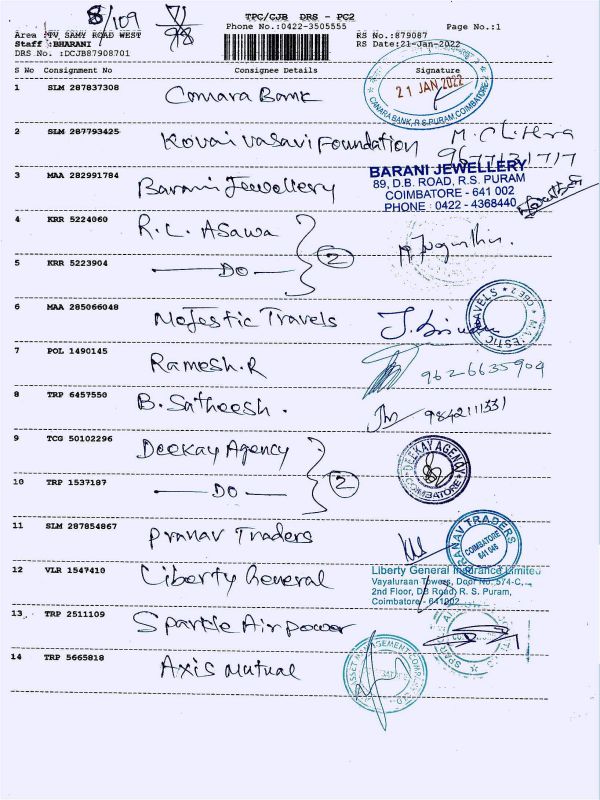 8/109 71/98
TPC/CJB DRS - PC2
Phone No.:0422-3505555 Page No.:1
Area :TV SAMY ROAD WEST RS No.:879087
Staff :BHARANI RS Date:21-Jan-2022
DRS No. :DCJB87908701
S No Consignment No Consignee Details Signature
1 SLM 287837308 Canara Bank 21 JAN 2022
CANARA BANK, R.S.PURAM, COIMBATORE-2
2 SLM 287793425 Kovai Vasavi Foundation
9677131717
3 MAA 282991784 Barani Jewellery
BARANI JEWELLERY
89, D.B. ROAD, R.S. PURAM
COIMBATORE - 641 002
PHONE : 0422 - 4368440
4 KRR 5224060 R.L. Asawa
2
5 KRR 5223904 DO
6 MAA 285066048 Mojestic Travels
7 POL 1490145 Ramesh.R 9626635904
8 TRP 6457550 B. Satheesh. 9842111331
9 TCG 50102296 Deekay Agency DEEKAY AGENCY
COIMBATORE
10 TRP 1537187 DO 2
11 SLM 287854867 Pranav Traders PRANAV TRADERS
COIMBATORE
12 VLR 1547410 Liberty General Liberty General Insurance Limited
Vayaluraan Towers, Door No. 574-C,
2nd Floor, DB Road, R. S. Puram,
Coimbatore - 641002
13 TRP 2511109 Sparkle Air power
14 TRP 5665818 Axis mutual